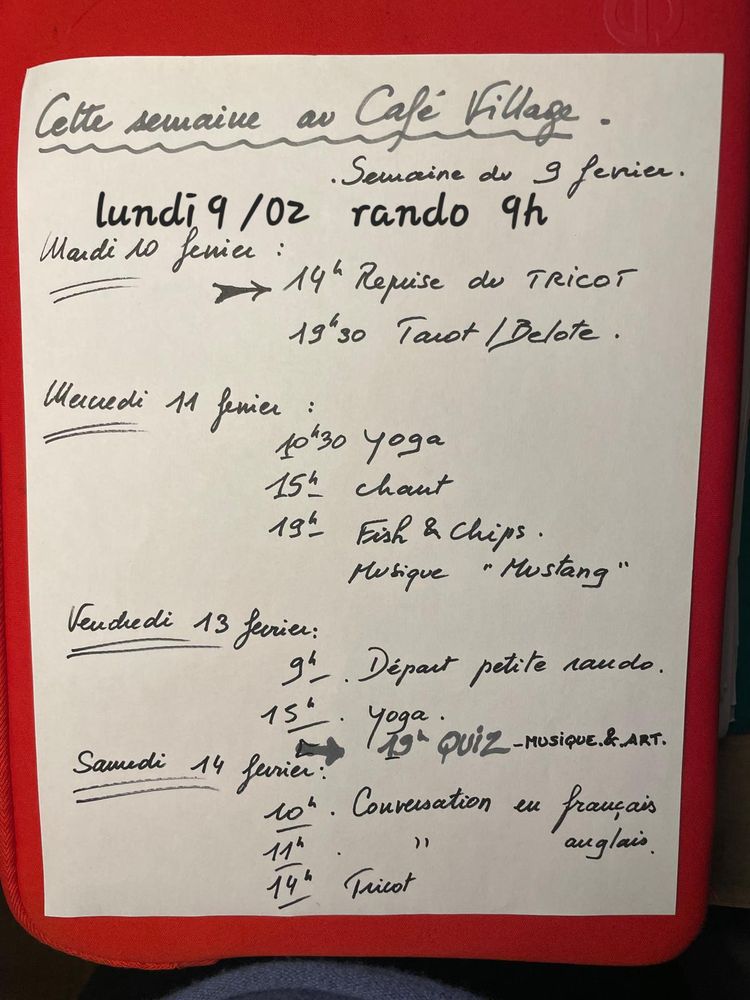 Cette semaine au Café Village.
. Semaine du 9 fevrier.
lundi 9/02 rando 9h
Mardi 10 fevrier :
14h Reprise du TRICOT
19h30 Tarot / Belote.
Mercredi 11 fevrier :
10h30 Yoga
15h chant
19h Fish & Chips.
Musique "Mustang"
Vendredi 13 fevrier:
9h. Départ petite rando.
15h. Yoga.
19h QUIZ - MUSIQUE.&.ART.
Samedi 14 fevrier:
10h. Conversation en français
11h. " anglais.
14h Tricot